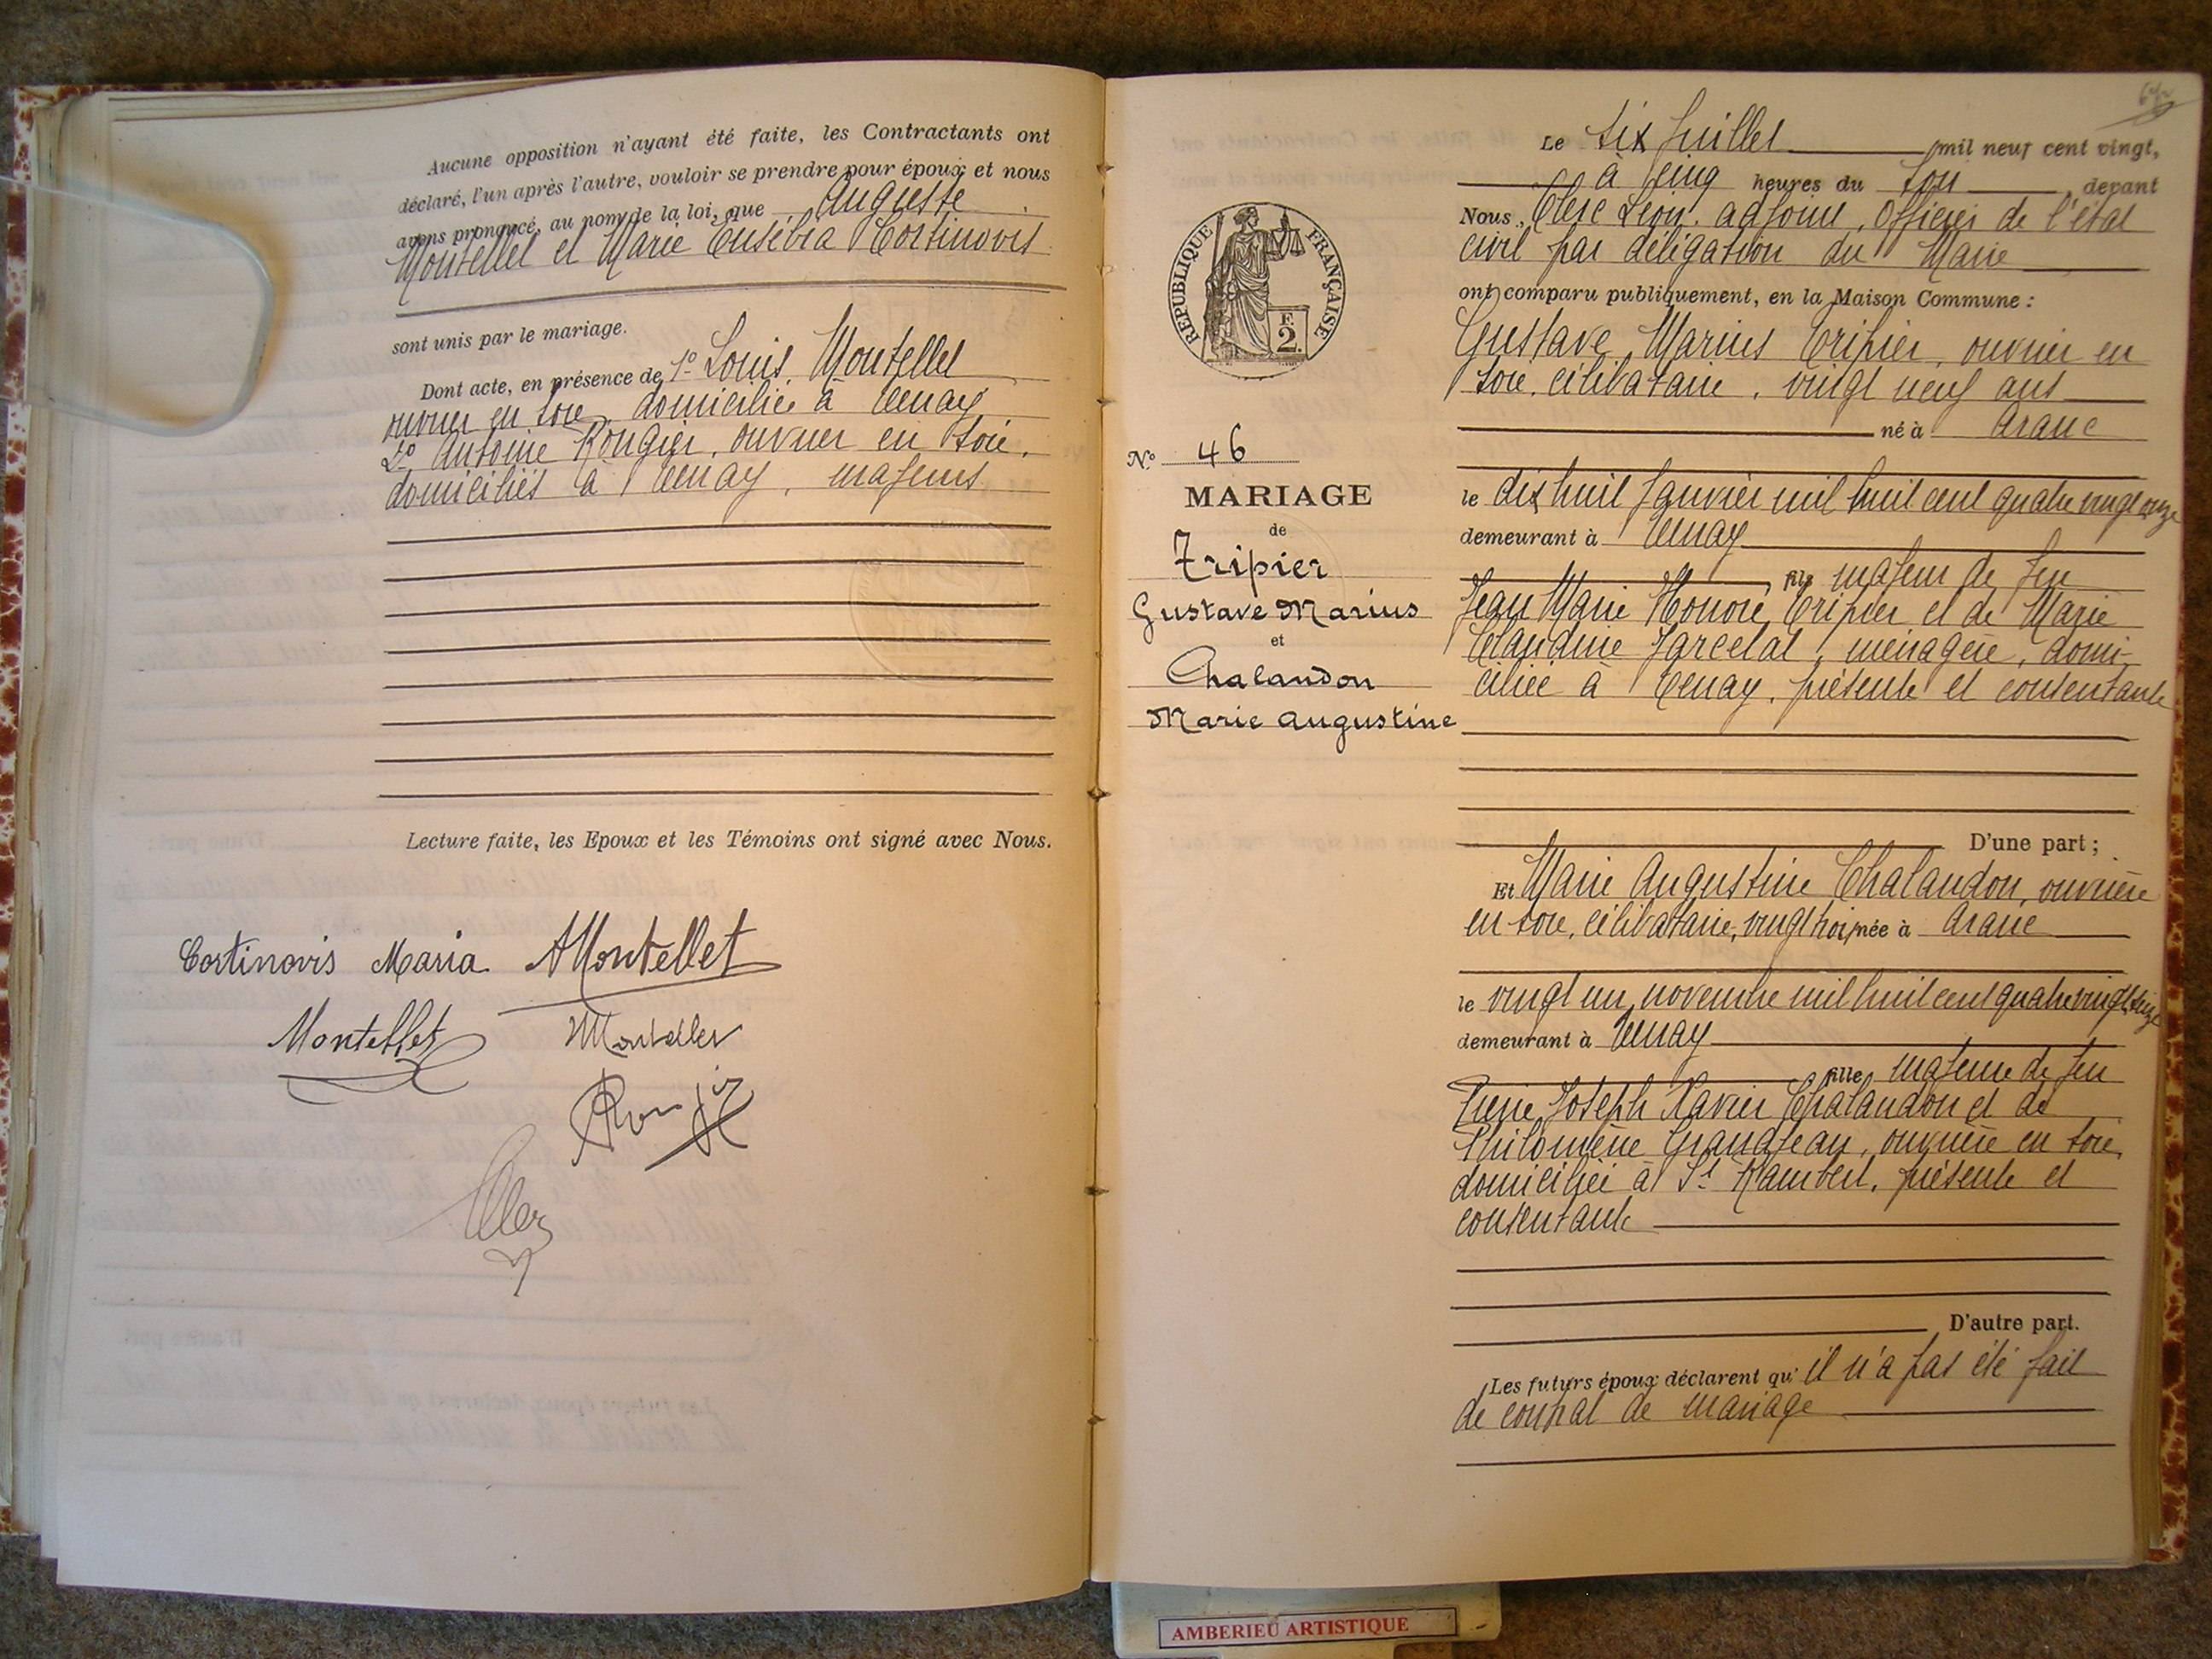 Aucune opposition n'ayant été faite, les Contractants ont
déclaré, l'un après l'autre, vouloir se prendre pour époux et nous
avons prononcé, au nom de la loi, que Auguste
Montellet et Marie Eusébia Cortinovis
sont unis par le mariage.
Dont acte, en présence de 1º Louis Montellet
ouvrier en soie, domicilié à Tenay
2º Antoine Rougier, ouvrier en soie,
domiciliés à Tenay, majeurs
Lecture faite, les Epoux et les Témoins ont signé avec Nous.
Cortinovis Maria AMontellet
Montellet Montellet
Rougier
Clerc
Le six Juillet mil neuf cent vingt,
à cinq heures du soir, devant
Nous, Clerc Léon, adjoint, officier de l'état
civil par délégation du Maire
ont comparu publiquement, en la Maison Commune :
Gustave Marius Tripier, ouvrier en
soie, célibataire, vingt neuf ans
né à Aranc
le dix huit Janvier mil huit cent quatre vingt onze
demeurant à Tenay
fils majeur de feu
Jean Marie Honoré Tripier et de Marie
Claudine Jarcelat, ménagère, domi-
ciliée à Tenay, présente et consentante
REPUBLIQUE FRANÇAISE
F.
2.
Nº 46
MARIAGE
de
Tripier
Gustave Marius
et
Chalandon
Marie Augustine
D'une part ;
Et Marie Augustine Chalandon, ouvrière
en soie, célibataire, vingt trois, née à Aranc
le vingt un novembre mil huit cent quatre vingt seize
demeurant à Tenay
fille majeure de feu
Pierre Joseph Xavier Chalandon et de
Philomène Grandjean, ouvrière en soie,
domiciliée à St Rambert, présente et
consentante
D'autre part.
Les futurs époux déclarent qu'il n'a pas été fait
de contrat de mariage
AMBERIEU ARTISTIQUE